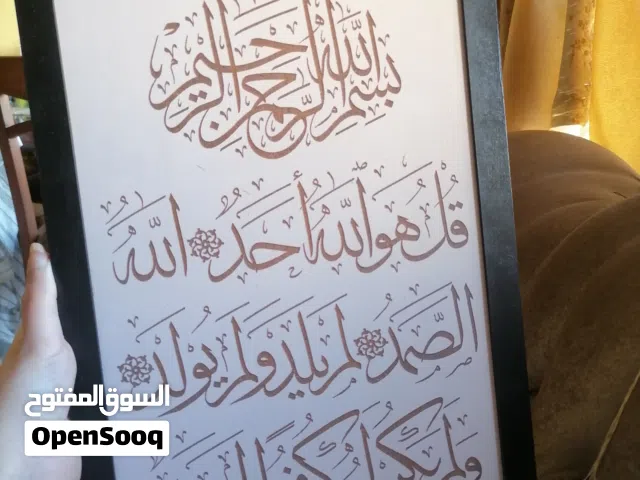 بسم الله الرحمن الرحيم
قُلْ هُوَ اللهُ أَحَدٌ اللهُ
الصَّمَدُ لَمْ يَلِدْ وَلَمْ يُولَدْ
وَلَمْ يَكُن لَّهُ كُفُوًا
السوق المفتوح
OpenSooq